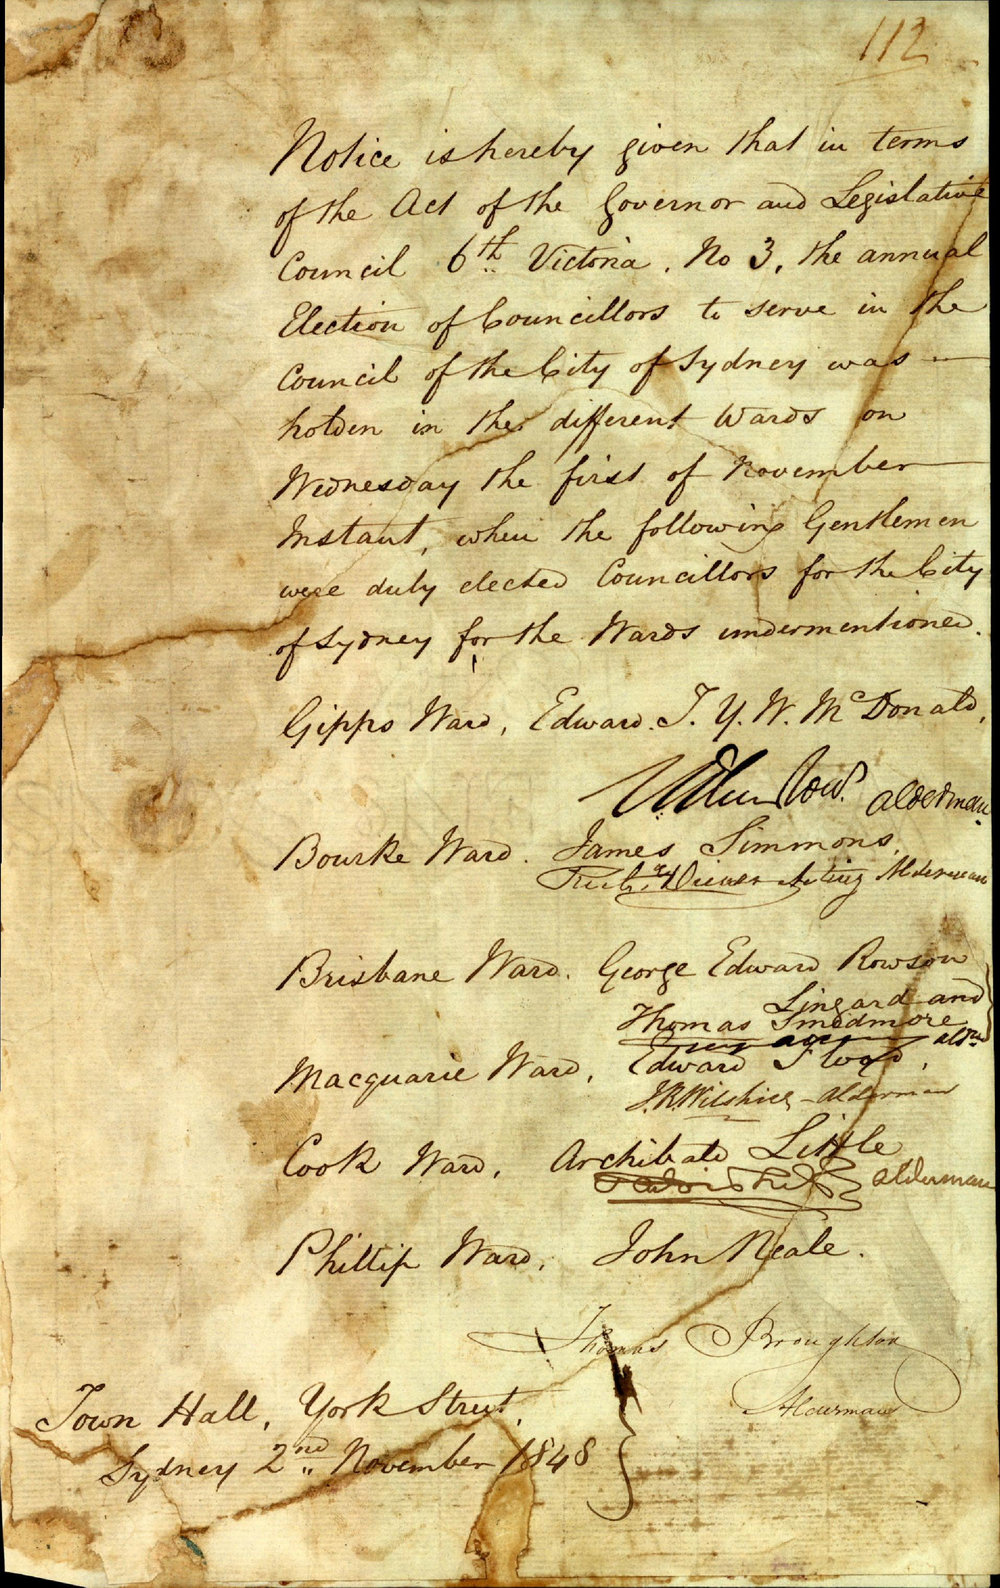 112
Notice is hereby given that in terms
of the Act of the Governor and Legislative
Council 6th Victoria. No 3, the annual
Election of Councillors to serve in the
Council of the City of Sydney was
holden in the different Wards on
Wednesday the first of November
Instant, when the following Gentlemen
were duly elected Councillors for the City
of Sydney for the Wards undermentioned.
Gipps Ward, Edward. J. Y. W. McDonald,
Alderman.
Bourke Ward. James Simmons,
Acting Alderman
Brisbane Ward. George Edward Rowson
Lingard and
Thomas Smidmore
aldn
Macquarie Ward, Edward Flood,
J.R. Wilshire - Alderman
Cook Ward, Archibald Little
Alderman
Phillip Ward, John Neale.
Thomas Broughton
Alderman
Town Hall, York Street,
Sydney 2nd November 1848